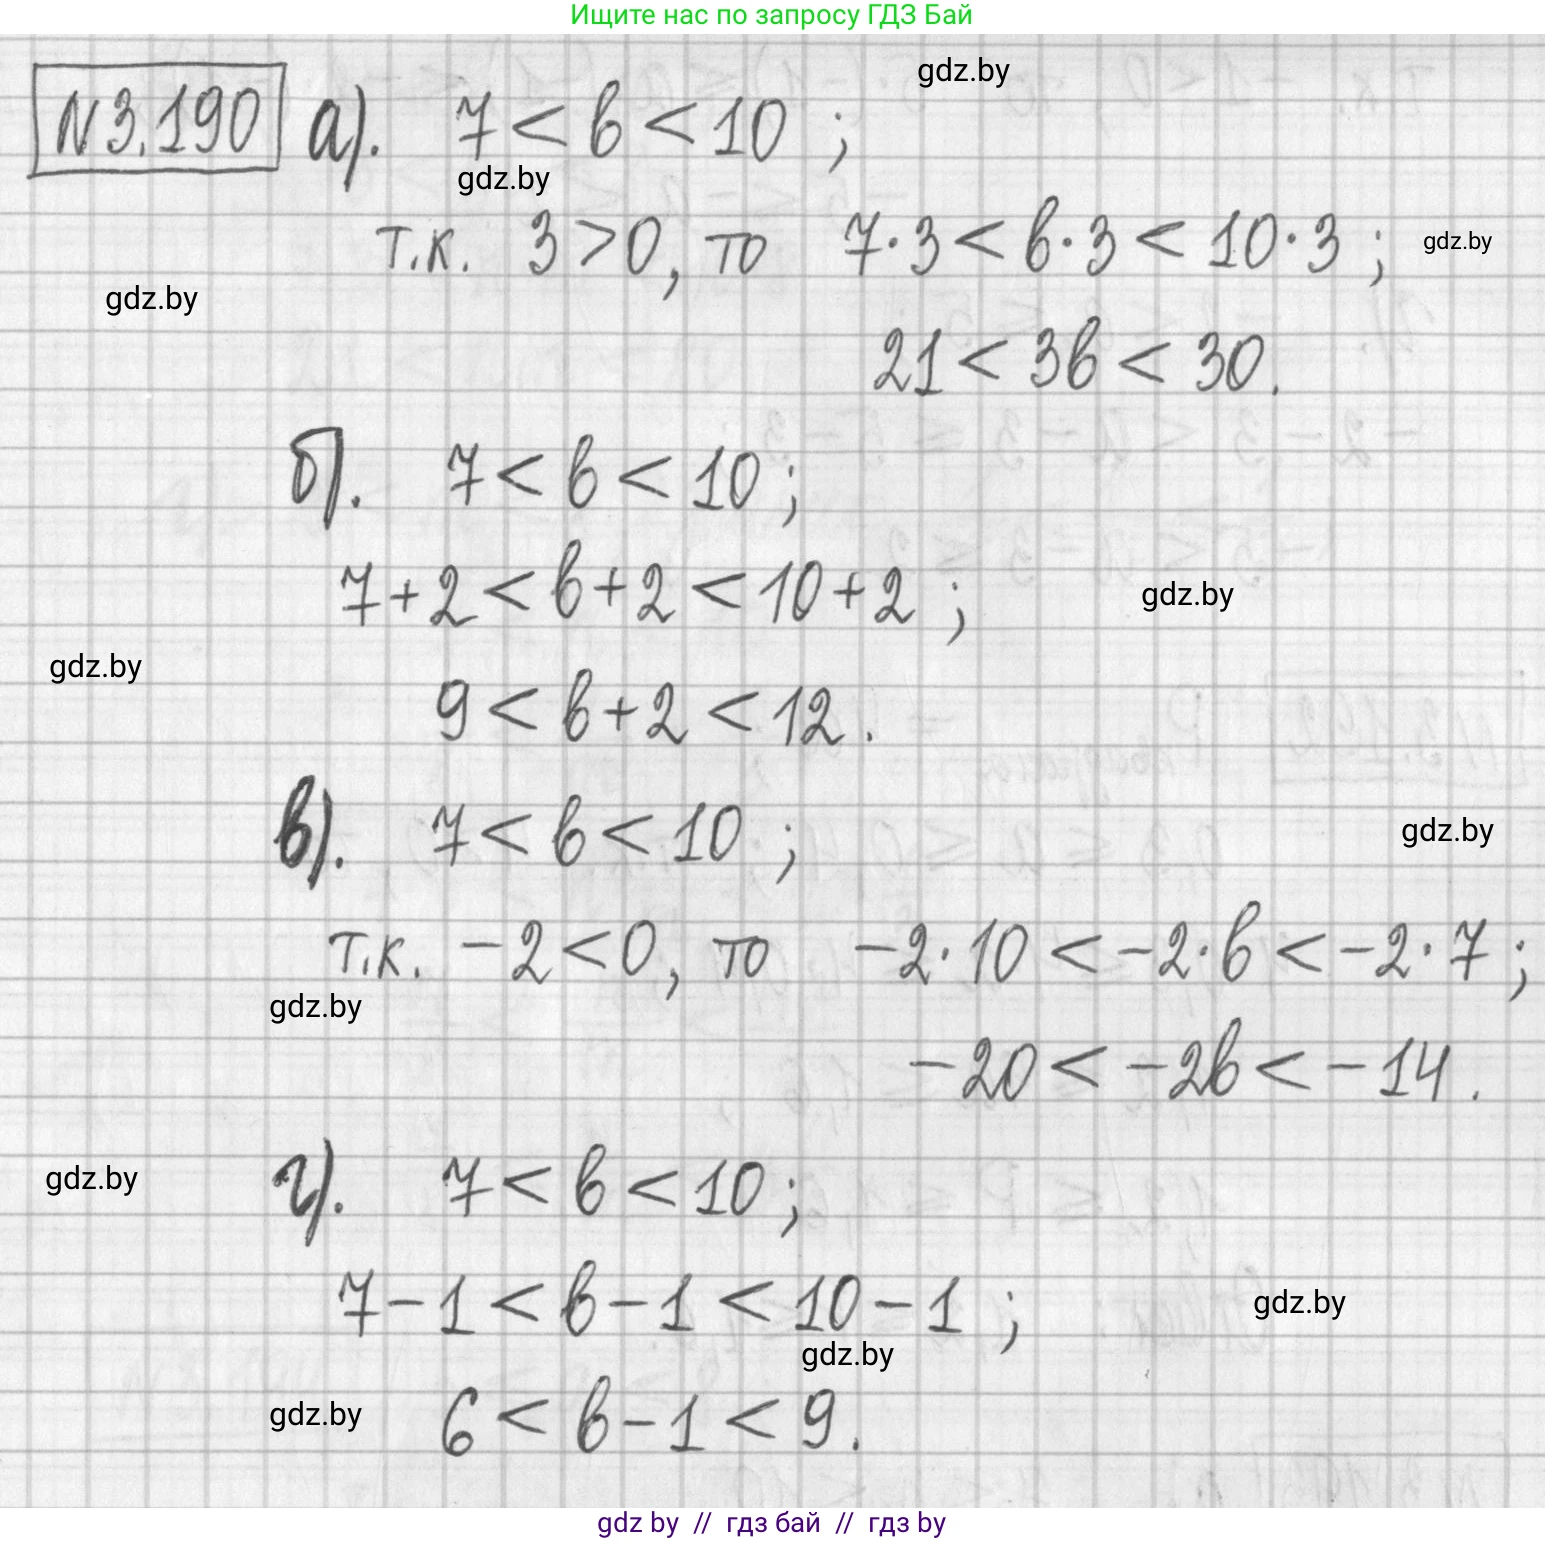 Ищите нас по запросу ГДЗ Бай
gdz.by
N3.190 а). 7 < в < 10 ;
gdz.by
т.к. 3 > 0, то 7·3 < в·3 < 10·3 ;
gdz.by
gdz.by
21 < 3в < 30.
б). 7 < в < 10 ;
7+2 < в+2 < 10+2 ;
gdz.by
gdz.by
9 < в+2 < 12.
в). 7 < в < 10 ;
gdz.by
т.к. -2 < 0, то -2·10 < -2·в < -2·7 ;
gdz.by
-20 < -2в < -14.
gdz.by
г). 7 < в < 10 ;
7-1 < в-1 < 10-1 ;
gdz.by
gdz.by
gdz.by
6 < в-1 < 9.
gdz by // гдз бай // гдз by